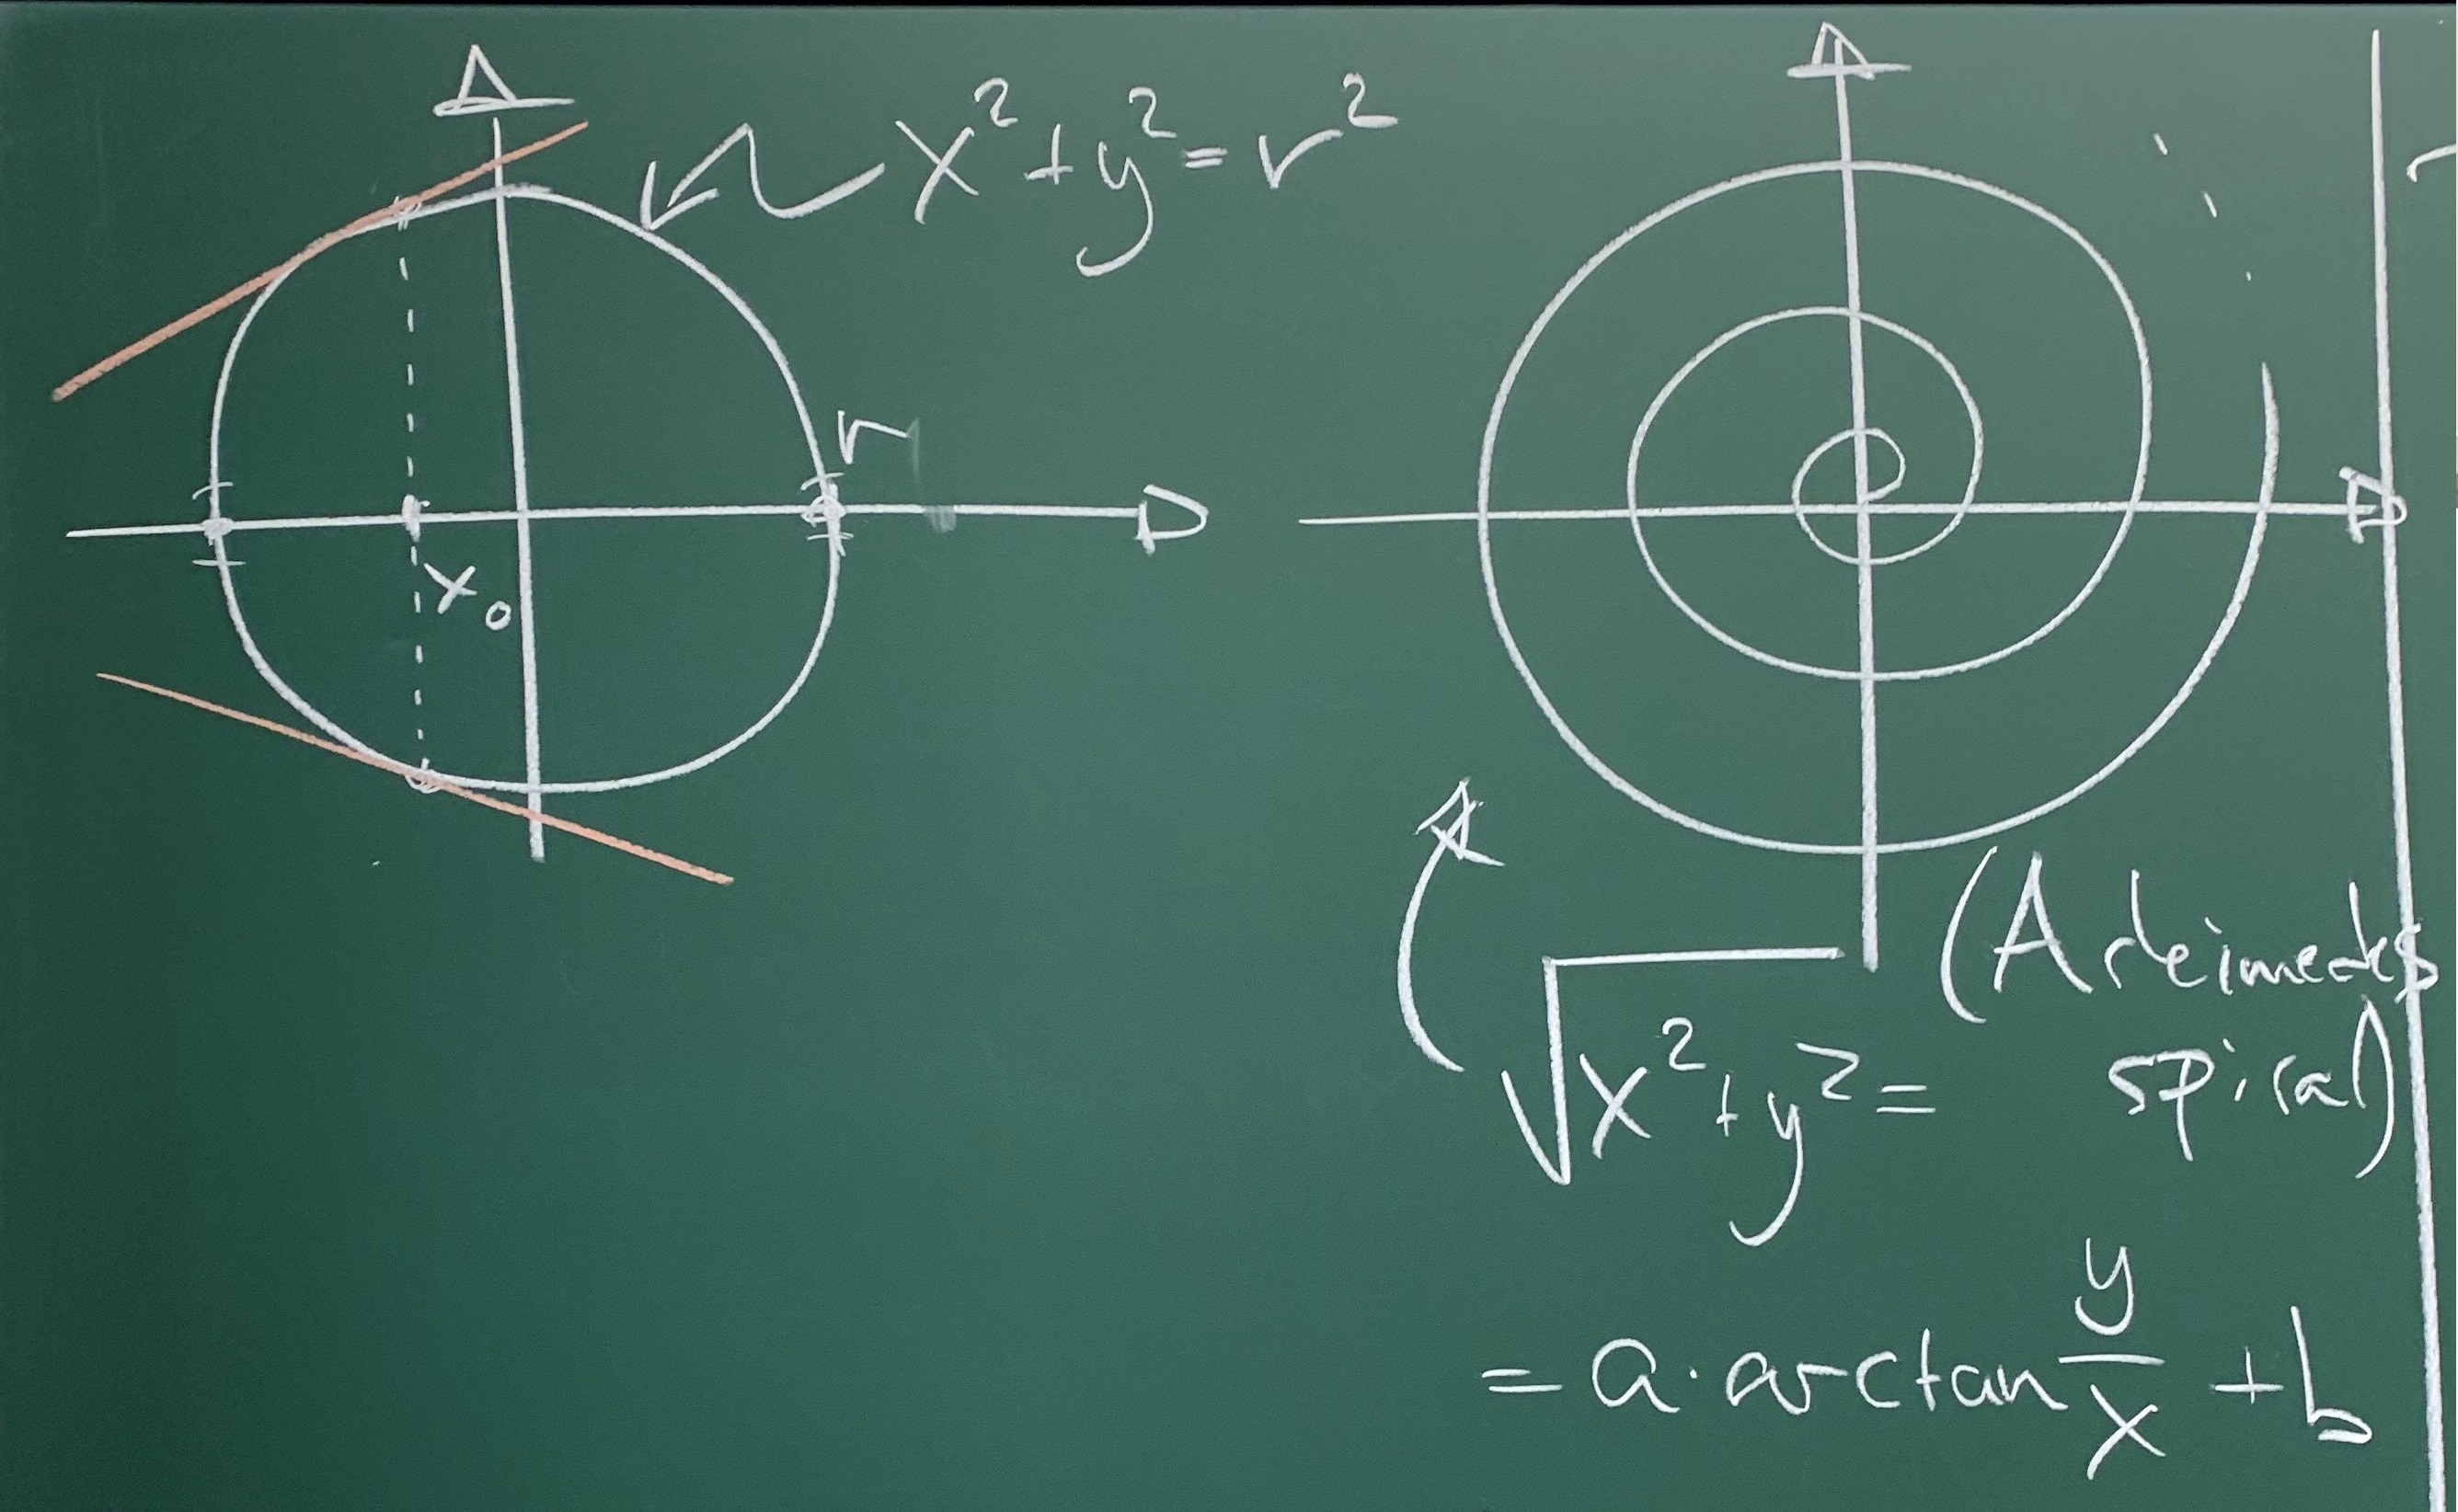 x² + y² = r²
r
x₀
(Arkimedes
spiral)
√(x² + y²) =
= a · arctan y/x + b